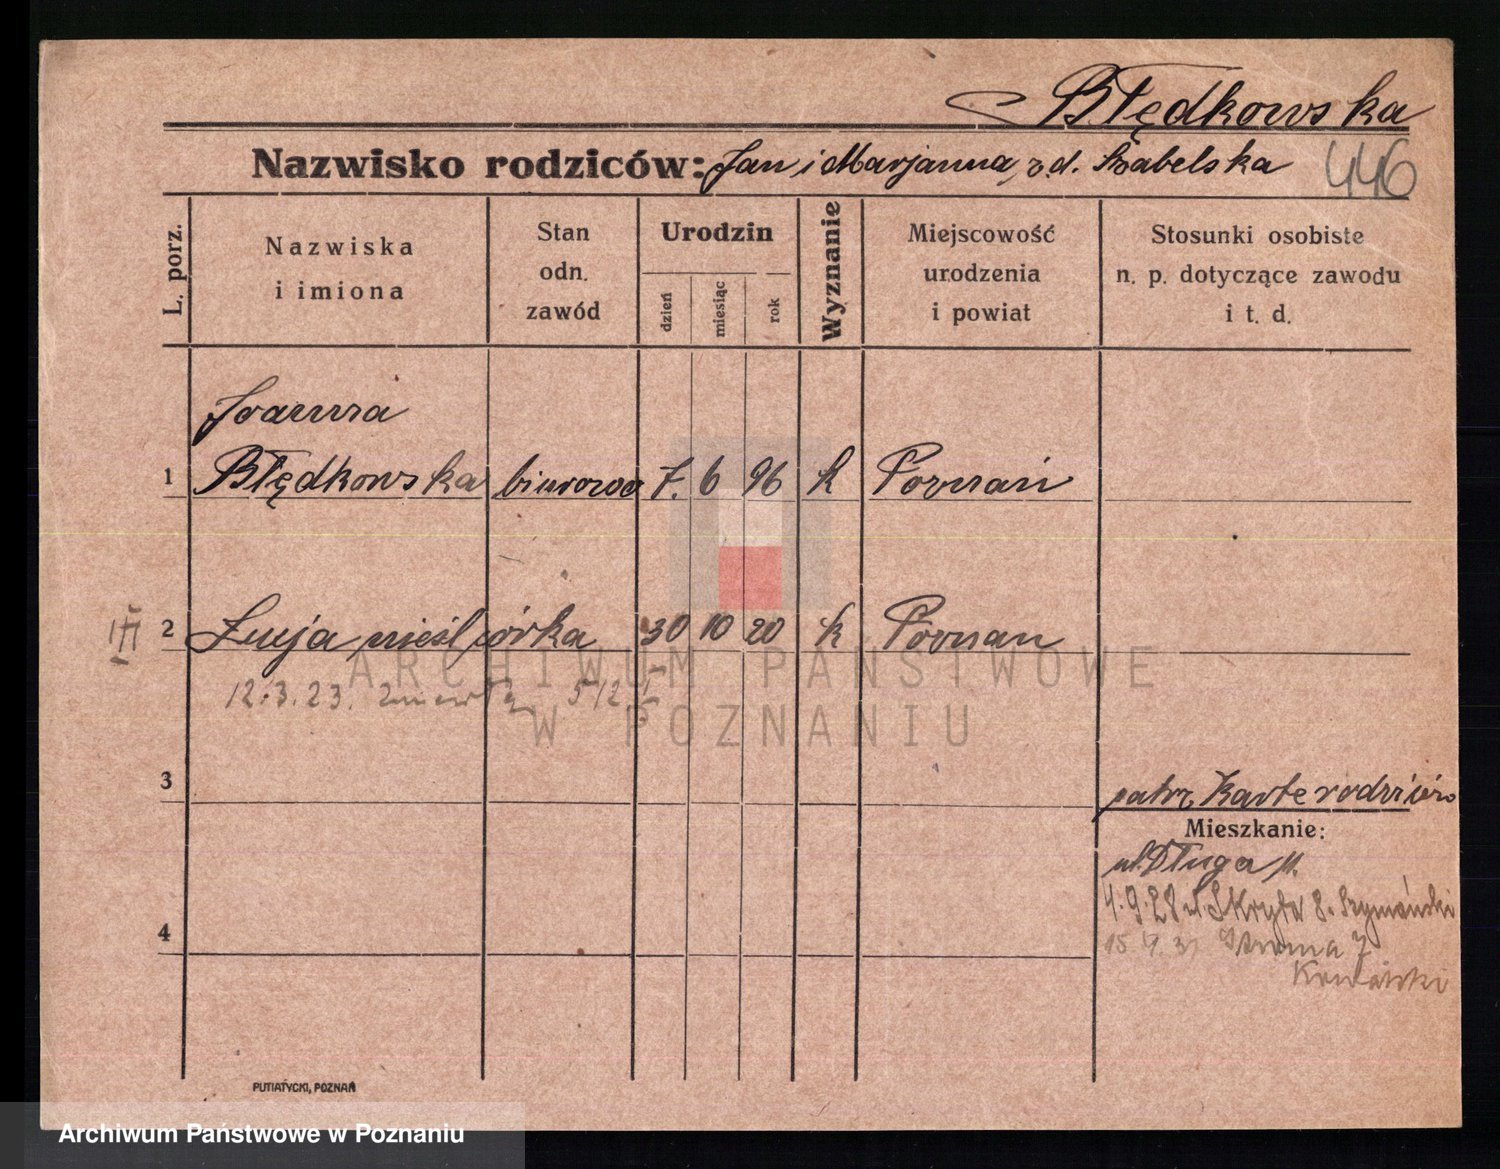 Błędkowska
Nazwisko rodziców: Jan i Marjanna, z d. Szabelska 446
L. porz.
Nazwiska
i imiona
Stan
odn.
zawód
Urodzin
dzień
miesiąc
rok
Wyznanie
Miejscowość
urodzenia
i powiat
Stosunki osobiste
n. p. dotyczące zawodu
i t. d.
Joanna
1 Błędkowska biurowa 7. 6 96 k Poznań
2 Łucja nieśl córka 30 10 20 k Poznan
12.3.23. zmarła
3
patrz Kartę rodziców
Mieszkanie:
ul. Długa 11.
4.9.28 ul. Skryta 8. Szymański
4
15. 31 7
Kowalski
PUTIATYCKI, POZNAŃ
ARCHIWUM PAŃSTWOWE
W POZNANIU
Archiwum Państwowe w Poznaniu